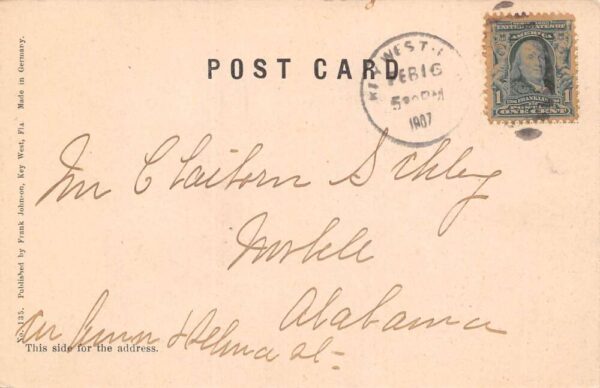 POST CARD
KEY WEST
FEB 16
5 30 PM
1907
UNITED STATES OF AMERICA
FRANKLIN
1 ONE CENT 1
Mr Claiborn Schley
Mobile
Alabama
Selma St-
This side for the address.
No. 135. Published by Frank Johnson, Key West, Fla Made in Germany.